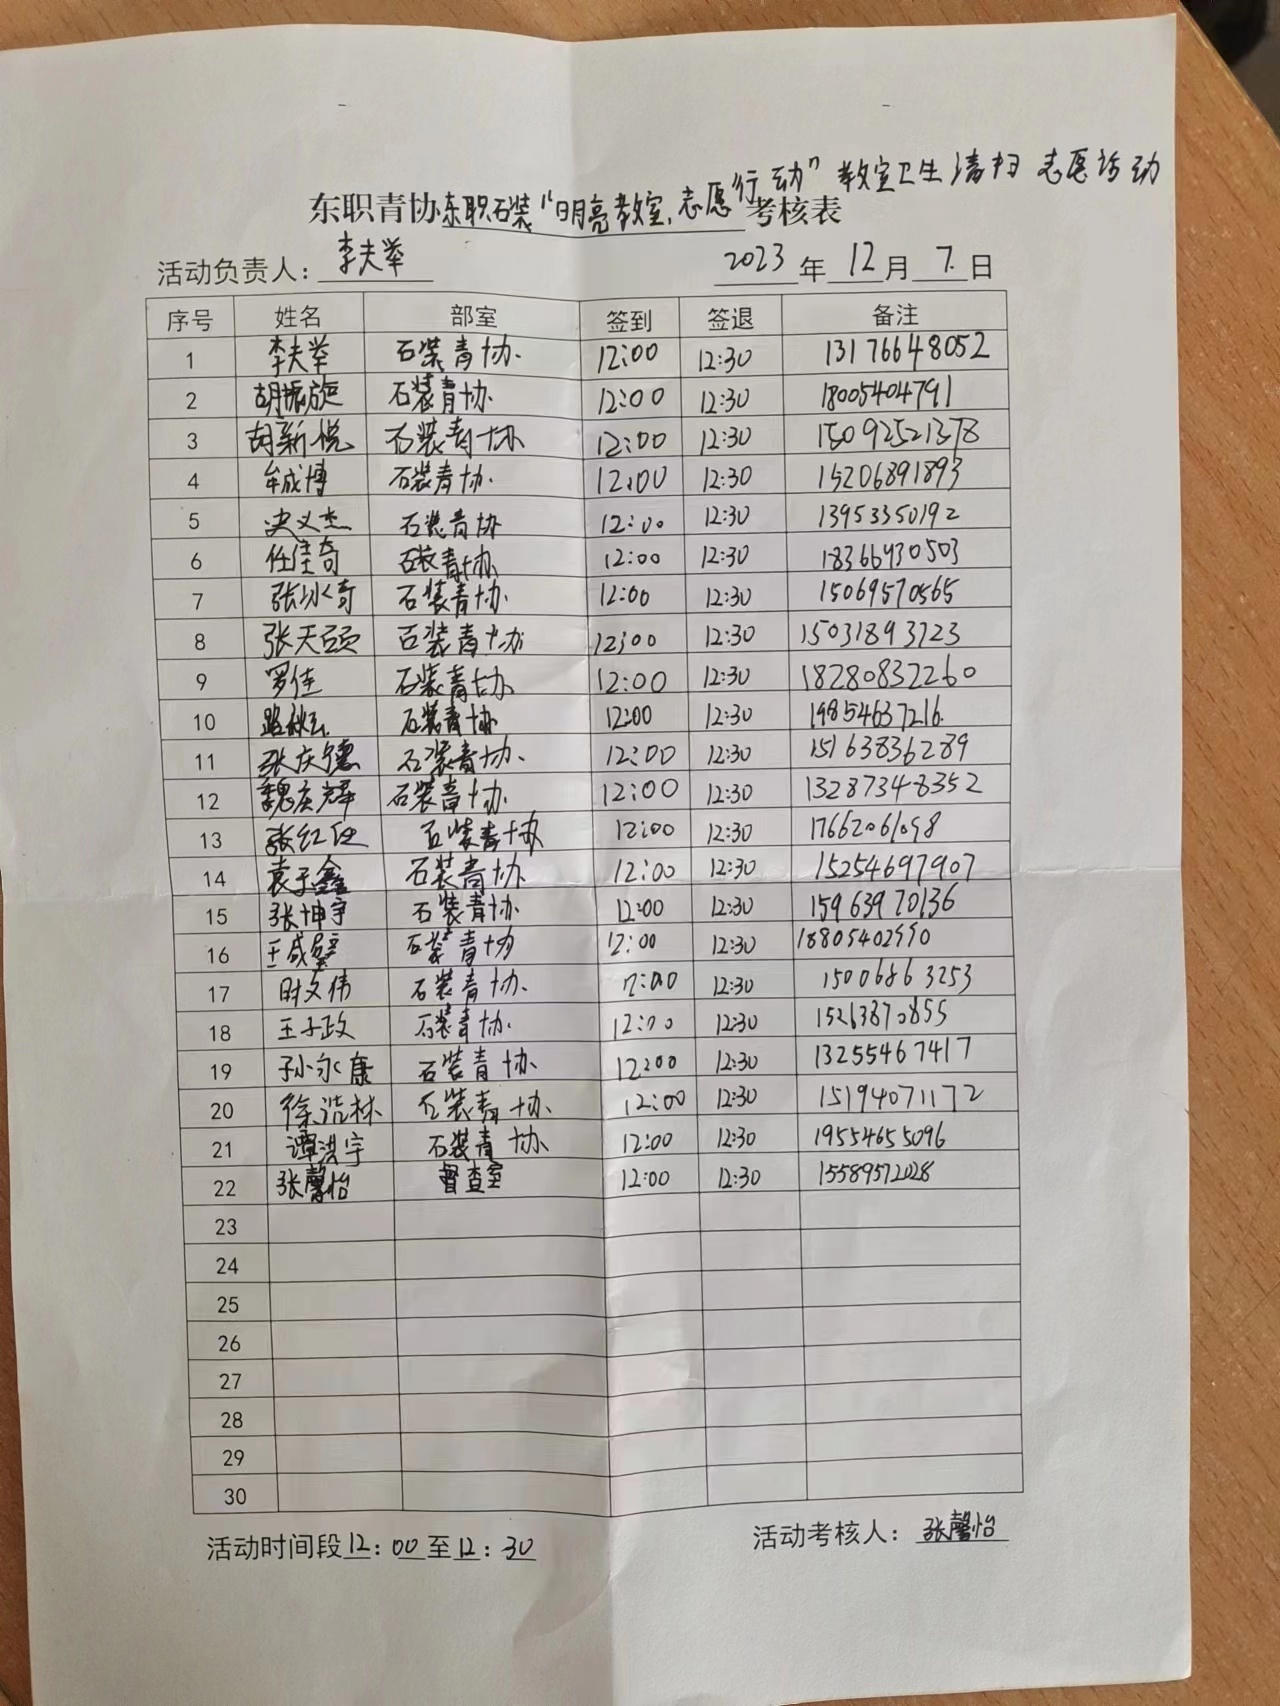 东职青协东职石装“明亮教室,志愿行动”教室卫生清扫志愿活动考核表
活动负责人: 李夫举 2023年12月7日
序号 姓名 部室 签到 签退 备注
1 李夫举 石装青协 12:00 12:30 13176648052
2 胡振旋 石装青协 12:00 12:30 18005404791
3 胡新悦 石装青协 12:00 12:30 15092521378
4 牟成博 石装青协 12:00 12:30 15206891893
5 义杰 石装青协 12:00 12:30 13953350192
6 任佳奇 石装青协 12:00 12:30 18366930503
7 张冰奇 石装青协 12:00 12:30 15069570565
8 张天硕 石装青协 12:00 12:30 15031893723
9 罗佳 石装青协 12:00 12:30 18280832260
10 路 石装青协 12:00 12:30 19854637216
11 张庆德 石装青协 12:00 12:30 15163836289
12 魏庆辉 石装青协 12:00 12:30 13287348352
13 张红 石装青协 12:00 12:30 17662061098
14 袁子鑫 石装青协 12:00 12:30 15254697907
15 张坤宇 石装青协 12:00 12:30 15963970136
16 王成 石装青协 12:00 12:30
17 时文伟 石装青协 12:00 12:30 15006863253
18 王子政 石装青协 12:00 12:30 15263870855
19 孙永康 石装青协 12:00 12:30 13255467417
20 徐浩林 石装青协 12:00 12:30 15194071172
21 谭洪宇 石装青协 12:00 12:30 19554655096
22 张馨怡 督查室 12:00 12:30 15589572028
23
24
25
26
27
28
29
30
活动时间段12:00至12:30 活动考核人: 张馨怡